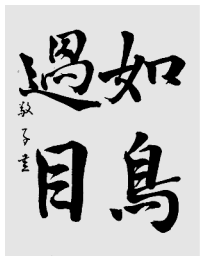 如鳥
過目
敬子書